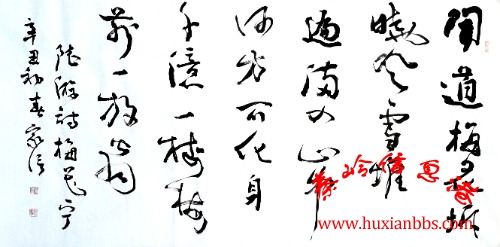 闻道梅花坼
晓风雪堆
遍满四山中
何方可化身
千億一樹梅
前一放翁
陆游诗梅花
辛丑初春
www.huxianbbs.com